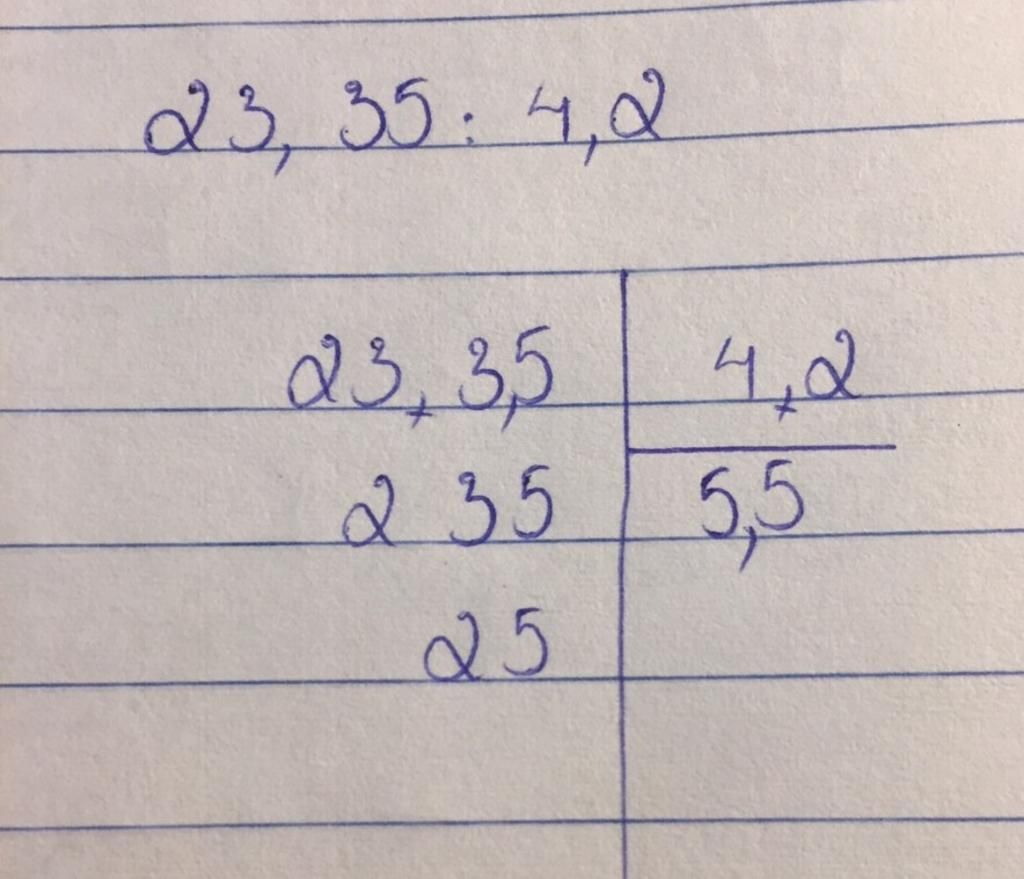 23,35 : 4,2
23,3,5 4,2
235 5,5
25